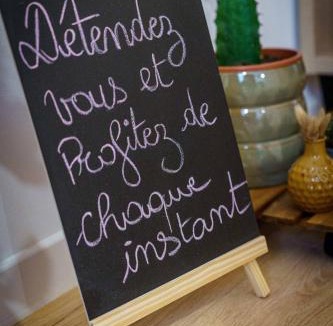 Détendez
vous et
Profitez de
chaque
instant